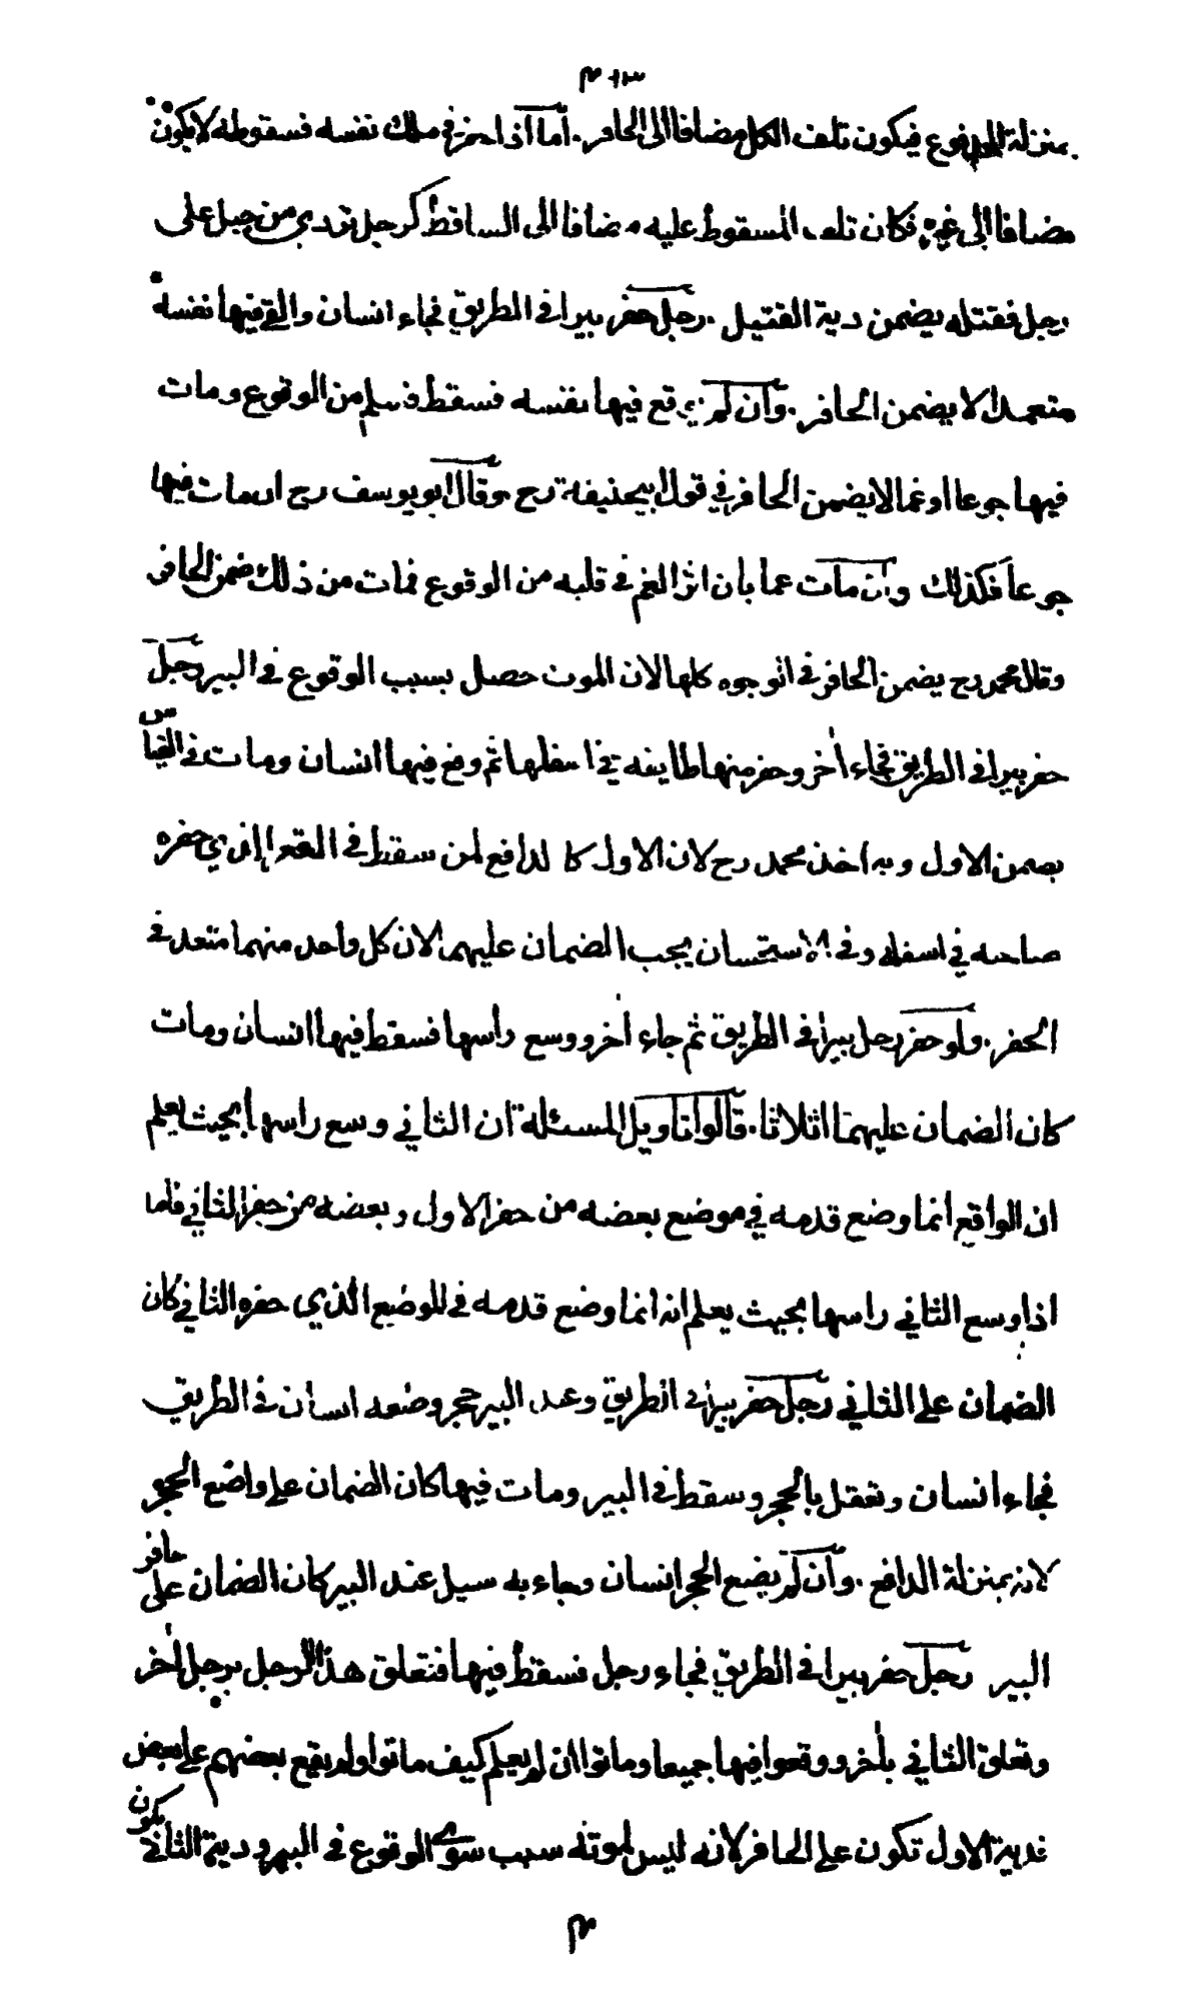 بمنزلة المدفوع فيكون تلف الكل مضافا الى الحافر. أما اذا حفر في ملك نفسه فسقوطه لا يكون
مضافا الى غيره فكان تلف المسقوط عليه مضافا الى الساقط كرجل تردى من جبل على
رجل فقتله يضمن دية القتيل. رجل حفر بيرا في الطريق فجاء انسان والقى فيها نفسه
متعمدا لا يضمن الحافر. وان لم يوقع فيها نفسه فسقط فسلم من الوقوع ومات
فيها جوعا او غما لا يضمن الحافر في قول ابيحنيفة رح وقال ابو يوسف رح ان مات فيها
جوعا فكذلك وان مات غما بان اثر الغم في قلبه من الوقوع فمات من ذلك ضمن الحافر
وقال محمد رح يضمن الحافر في الوجوه كلها لان الموت حصل بسبب الوقوع في البير رجل
حفر بيرا في الطريق فجاء أخر وحفر منها طايفة في اسفلها ثم وقع فيها انسان ومات في القياس
يضمن الاول وبه اخذ محمد رح لان الاول كالدافع لمن سقط في القعر الذي حفره
صاحبه في اسفله وفي الاستحسان يجب الضمان عليهما لان كل واحد منهما متعد في
الحفر. ولو حفر رجل بيرا في الطريق ثم جاء أخر ووسع رأسها فسقط فيها انسان ومات
كان الضمان عليهما اثلاثا. قالوا تاويل المسئلة ان الثاني وسع راسها بحيث يعلم
ان الواقع انما وضع قدمه في موضع بعضه من حفر الاول وبعضه من حفر الثاني فاما
اذا وسع الثاني راسها بحيث يعلم انه انما وضع قدمه في الموضع الذي حفره الثاني كان
الضمان على الثاني رجل حفر بيرا في الطريق وعند البير حجر وضعه انسان في الطريق
فجاء انسان وتعقل بالحجر وسقط في البير ومات فيها كان الضمان على واضع الحجر
لانه بمنزلة الدافع. وان لم يضع الحجر انسان وجاء به سيل عند البير كان الضمان على حافر
البير رجل حفر بيرا في الطريق فجاء رجل فسقط فيها فتعلق هذا الرجل برجل أخر
وتعلق الثاني بأخر ووقعوا فيها جميعا وماتوا ان لم يعلم كيف ماتوا ولم يقع بعضهم على بعض
فدية الاول تكون على الحافر لانه ليس لموته سبب سوى الوقوع في البير ودية الثاني يكون